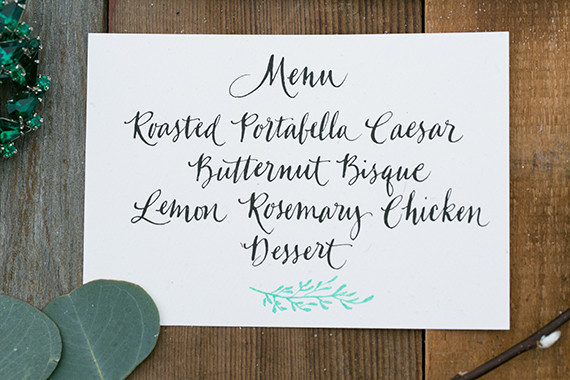 Menu
Roasted Portabella Caesar
Butternut Bisque
Lemon Rosemary Chicken
Dessert